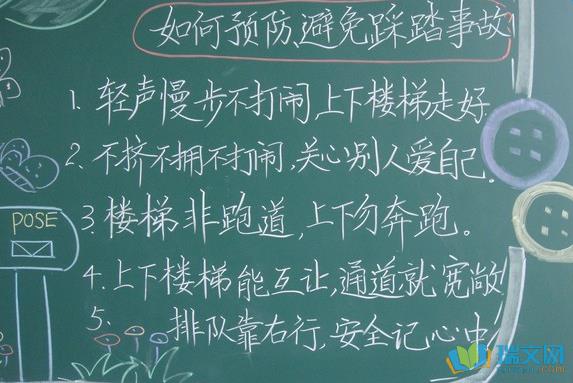 如何预防、避免踩踏事故
1. 轻声慢步不打闹,上下楼梯走好
2. 不挤不拥不打闹,关心别人爱自己。
3. 楼梯非跑道,上下勿奔跑。
POSE
4. 上下楼梯能互让,通道就宽敞!
5. 排队靠右行,安全记心中!
瑞文网